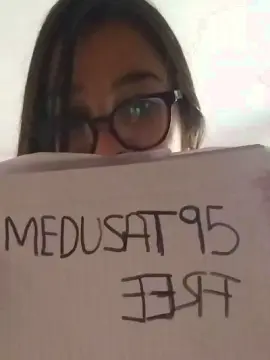 MEDUSAT95
FREE